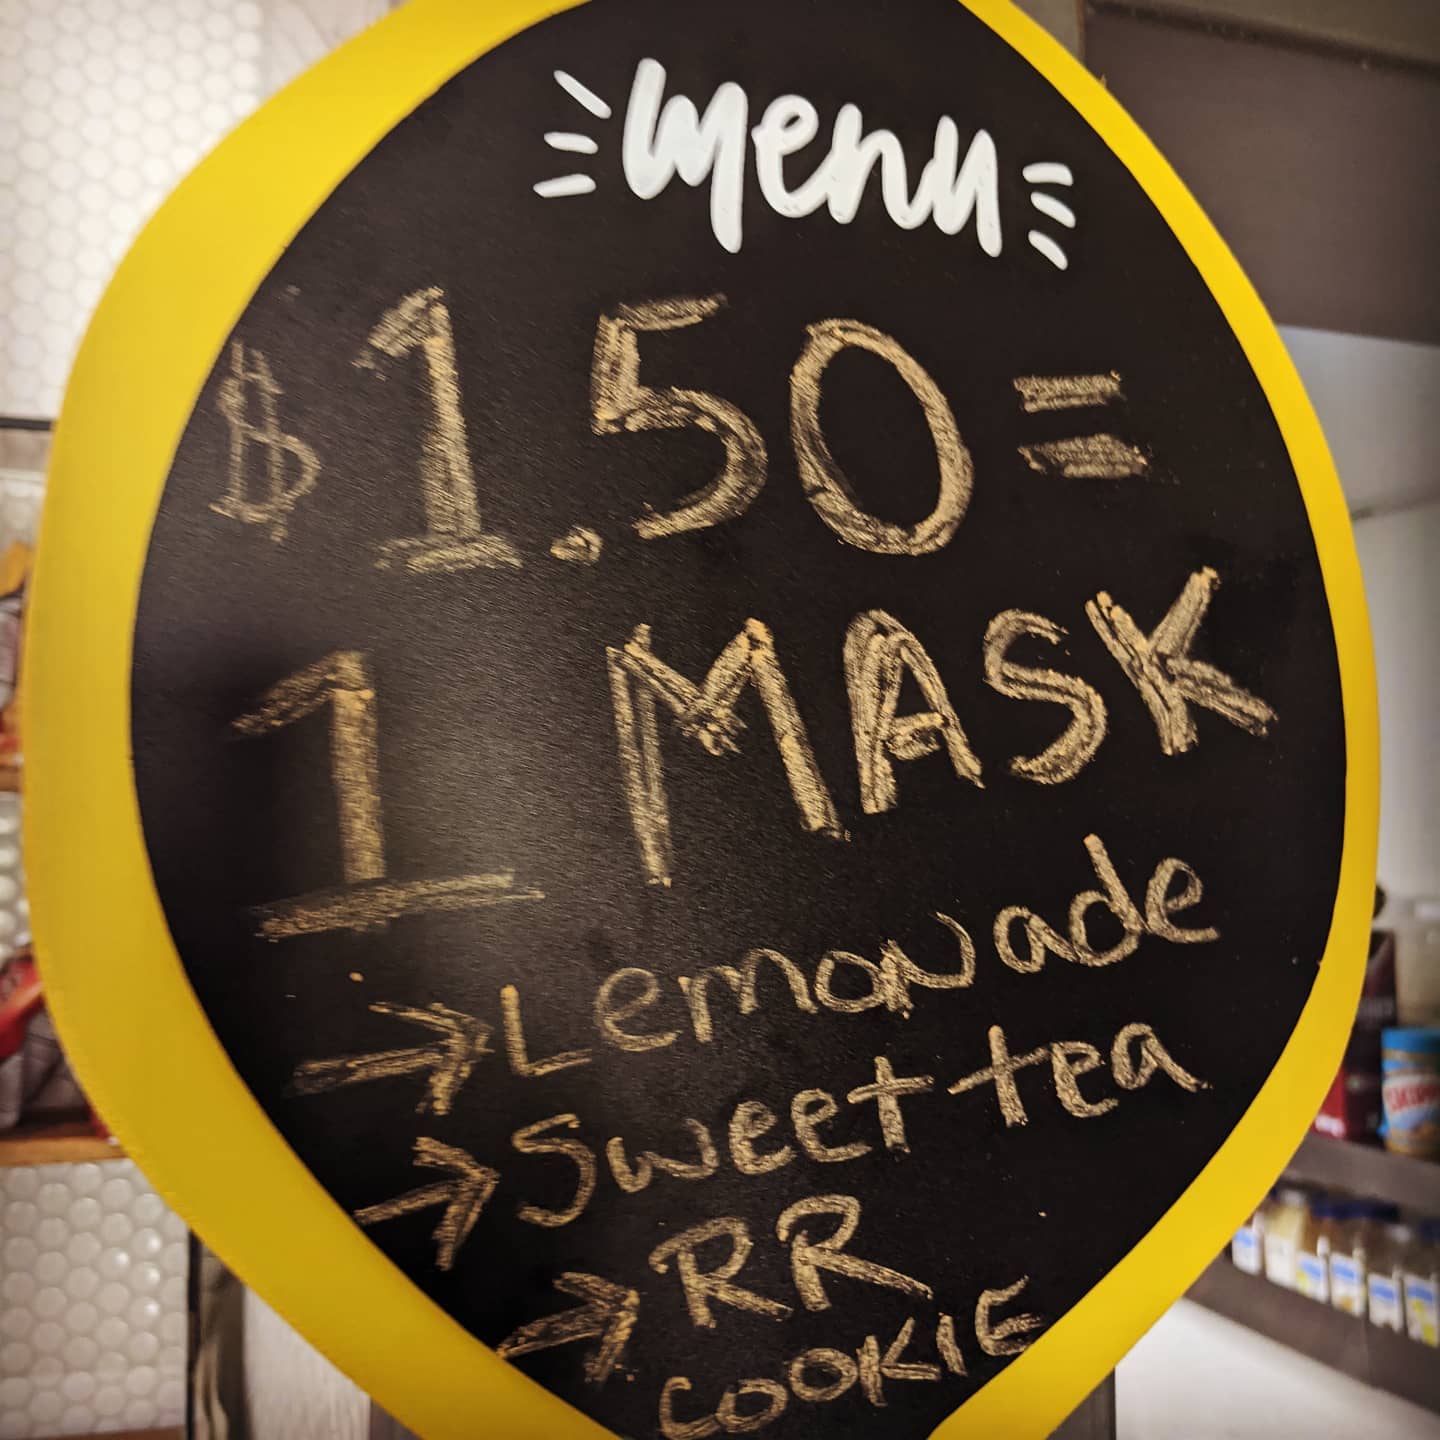 menu
$1.50 =
1 MASK
→ Lemonade
→ Sweet tea
→ RR
COOKIE
SKIPPY